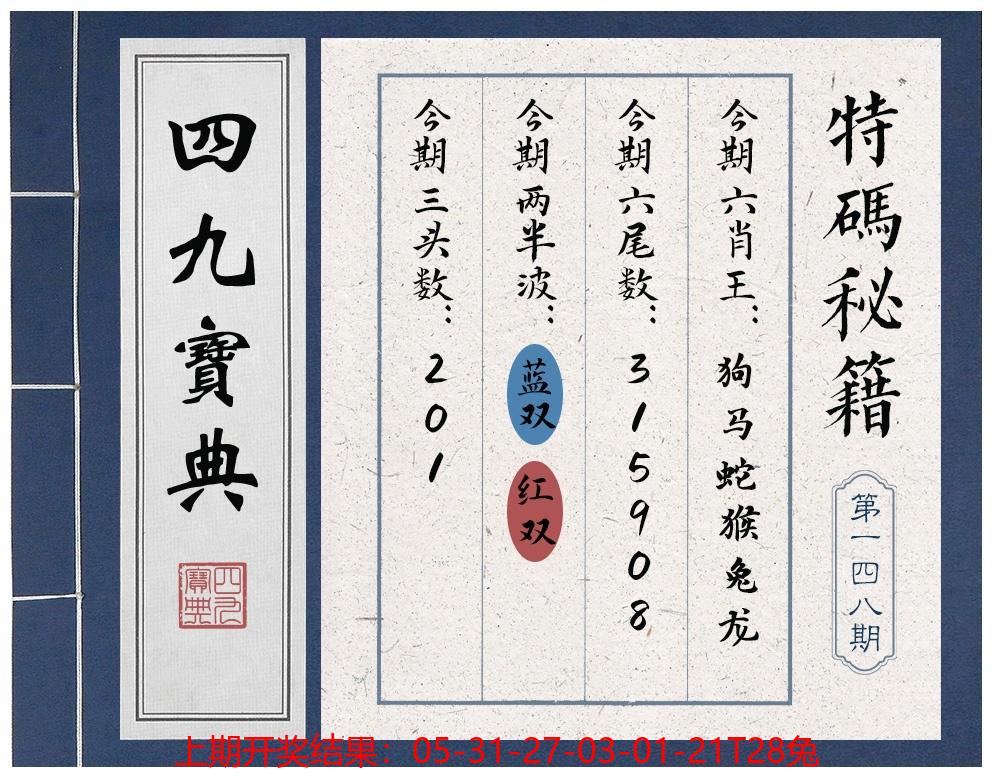 特碼秘籍
第一四八期
今期六肖王：狗马蛇猴兔龙
今期六尾数：315908
今期两半波：蓝双 红双
今期三头数：201
四九寶典
四九寶典
上期开奖结果：05-31-27-03-01-21T28兔